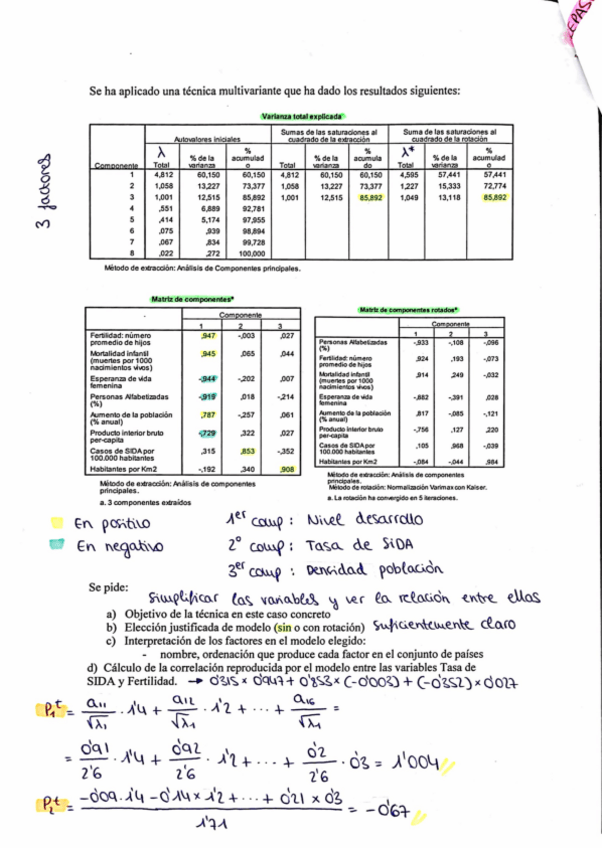 REPASO
Se ha aplicado una técnica multivariante que ha dado los resultados siguientes:
3 factores
Varianza total explicada
Autovalores iniciales | Sumas de las saturaciones al cuadrado de la extracción | Suma de las saturaciones al cuadrado de la rotación
λ | λ*
Componente | Total | % de la varianza | % acumulado | Total | % de la varianza | % acumulado | Total | % de la varianza | % acumulado
1 | 4,812 | 60,150 | 60,150 | 4,812 | 60,150 | 60,150 | 4,595 | 57,441 | 57,441
2 | 1,058 | 13,227 | 73,377 | 1,058 | 13,227 | 73,377 | 1,227 | 15,333 | 72,774
3 | 1,001 | 12,515 | 85,892 | 1,001 | 12,515 | 85,892 | 1,049 | 13,118 | 85,892
4 | ,551 | 6,889 | 92,781
5 | ,414 | 5,174 | 97,955
6 | ,075 | ,939 | 98,894
7 | ,067 | ,834 | 99,728
8 | ,022 | ,272 | 100,000
Método de extracción: Análisis de Componentes principales.
Matriz de componentesª
Componente
1 | 2 | 3
Fertilidad: número promedio de hijos | ,947 | -,003 | ,027
Mortalidad infantil (muertes por 1000 nacimientos vivos) | ,945 | ,065 | ,044
Esperanza de vida femenina | -,944 | -,202 | ,007
Personas Alfabetizadas (%) | -,919 | ,018 | -,214
Aumento de la población (% anual) | ,787 | -,257 | ,061
Producto interior bruto per-capita | -,729 | ,322 | ,027
Casos de SIDA por 100.000 habitantes | ,315 | ,853 | -,352
Habitantes por Km2 | -,192 | ,340 | ,908
Método de extracción: Análisis de componentes principales.
a. 3 componentes extraídos
Matriz de componentes rotadosª
Componente
1 | 2 | 3
Personas Alfabetizadas (%) | -,933 | -,108 | -,096
Fertilidad: número promedio de hijos | ,924 | ,193 | -,073
Mortalidad infantil (muertes por 1000 nacimientos vivos) | ,914 | ,249 | -,032
Esperanza de vida femenina | -,882 | -,391 | ,028
Aumento de la población (% anual) | ,817 | -,085 | -,121
Producto interior bruto per-capita | -,756 | ,127 | ,220
Casos de SIDA por 100.000 habitantes | ,105 | ,968 | -,039
Habitantes por Km2 | -,084 | -,044 | ,984
Método de extracción: Análisis de componentes principales.
Método de rotación: Normalización Varimax con Kaiser.
a. La rotación ha convergido en 5 iteraciones.
En positivo
En negativo
1er comp: Nivel desarrollo
2º comp: Tasa de SiDA
3er comp: Densidad población
Se pide:
simplificar las variables y ver la relación entre ellas
a) Objetivo de la técnica en este caso concreto
b) Elección justificada de modelo (sin o con rotación) suficientemente claro
c) Interpretación de los factores en el modelo elegido:
- nombre, ordenación que produce cada factor en el conjunto de países
d) Cálculo de la correlación reproducida por el modelo entre las variables Tasa de
SIDA y Fertilidad. → 0'315 × 0'947 + 0'853 × (-0'003) + (-0'352) × 0'027
P₁ᵗ = a₁₁/√λ₁ · 1'4 + a₁₂/√λ₁ · 1'2 + ... + a₁₆/√λ₁ =
= 0'91/2'6 · 1'4 + 0'92/2'6 · 1'2 + ... + 0'2/2'6 · 0'3 = 1'004
P₂ᵗ = (-0'09·1'4 - 0'14 × 1'2 + ... + 0'21 × 0'3)/1'71 = -0'67